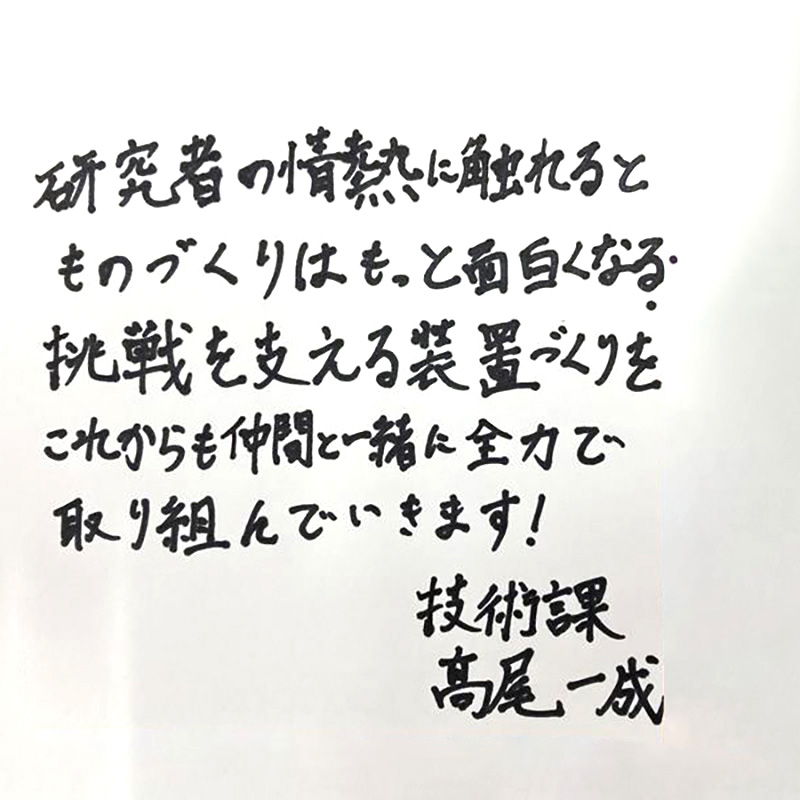 研究者の情熱に触れると
ものづくりはもっと面白くなる.
挑戦を支える装置づくりを
これからも仲間と一緒に全力で
取り組んでいきます!
技術課
髙尾一成